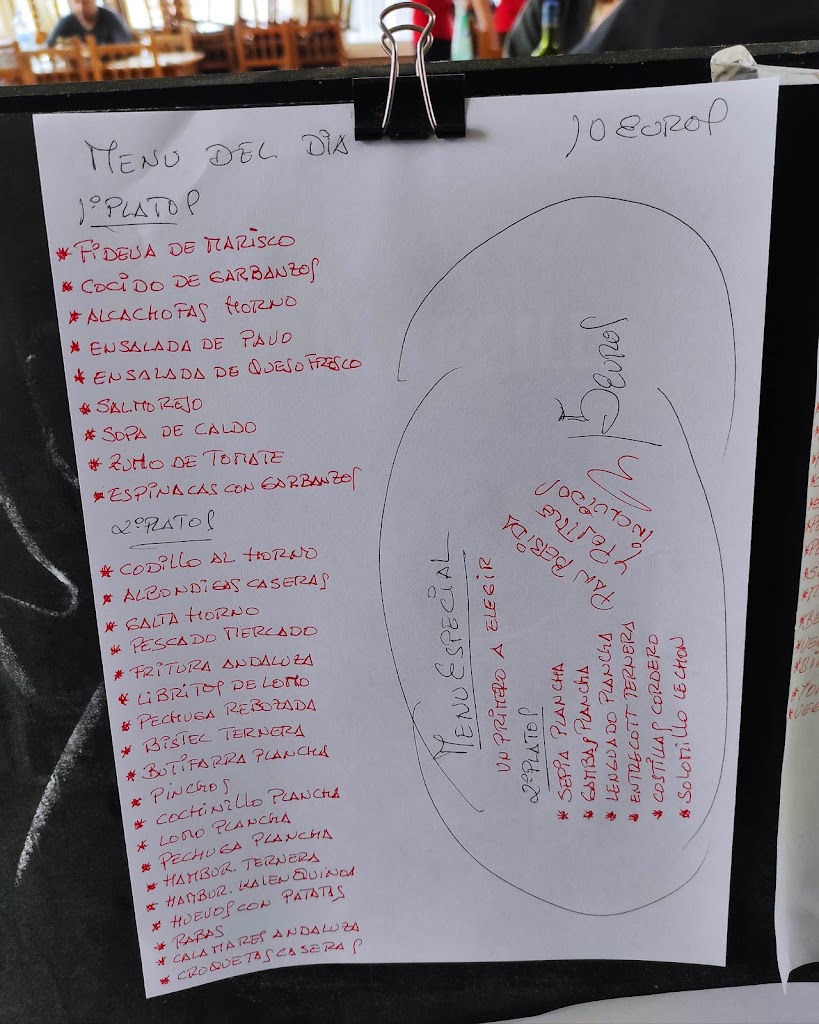 MENU DEL DIA
10 EUROS
1º PLATOS
* FIDEUA DE MARISCO
* COCIDO DE GARBANZOS
* ALCACHOFAS HORNO
* ENSALADA DE PAVO
* ENSALADA DE QUESO FRESCO
* SALMOREJO
* SOPA DE CALDO
* ZUMO DE TOMATE
* ESPINACAS CON GARBANZOS
2º PLATOS
* CODILLO AL HORNO
* ALBONDIGAS CASERAS
* GALTA HORNO
* PESCADO MERCADO
* FRITURA ANDALUZA
* LIBRITOS DE LOMO
* PECHUGA REBOZADA
* BISTEC TERNERA
* BUTIFARRA PLANCHA
* PINCHOS
* COCHINILLO PLANCHA
* LOMO PLANCHA
* PECHUGA PLANCHA
* HAMBUR. TERNERA
* HAMBUR. KALEN QUINOA
* HUEVOS CON PATATAS
* RABAS
* CALAMARES ANDALUZA
* CROQUETAS CASERAS
MENU ESPECIAL
15 EUROS
UN PRIMERO A ELEGIR
2º PLATOS
* SEPIA PLANCHA
* GAMBAS PLANCHA
* LENGUADO PLANCHA
* ENTRECOTT TERNERA
* COSTILLAS CORDERO
* SOLOMILLO LECHON
PAN BEBIDA
POSTRE